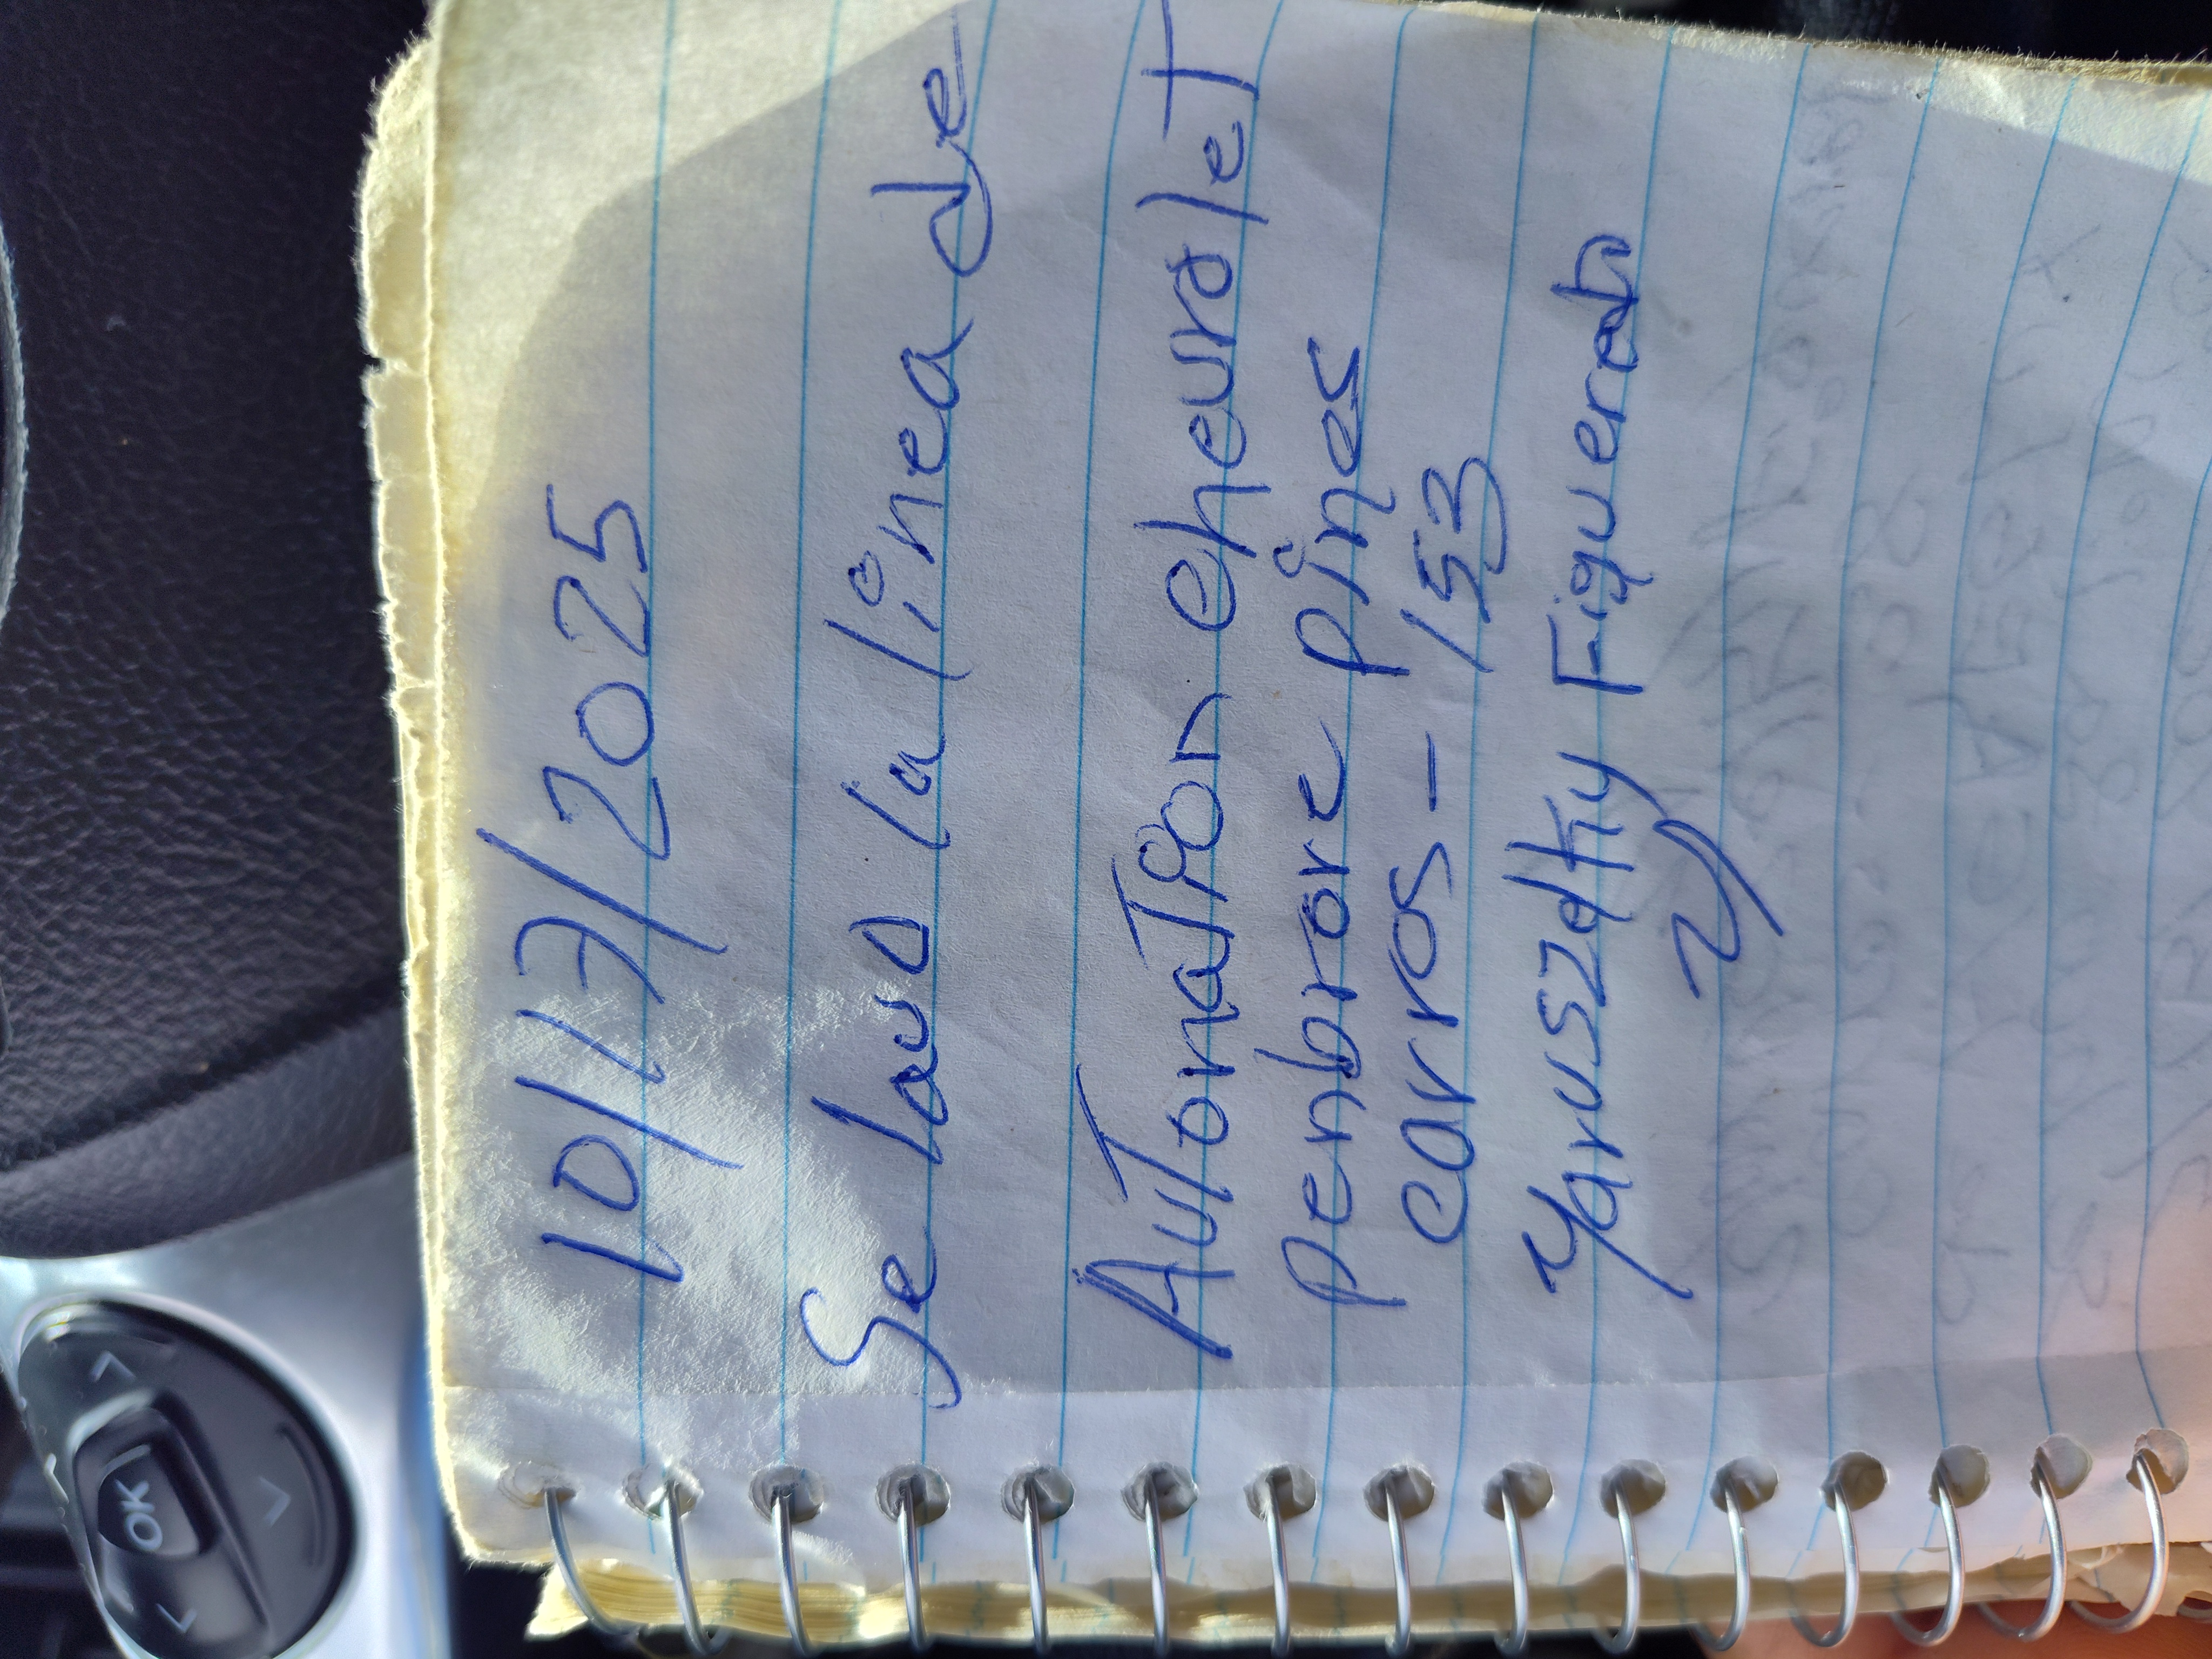 10/17/2025
Se lavo la linea de
AutonaTion chevrolet
penbrore pines
carros - 153
Yaruszdtky Figueroa
OK